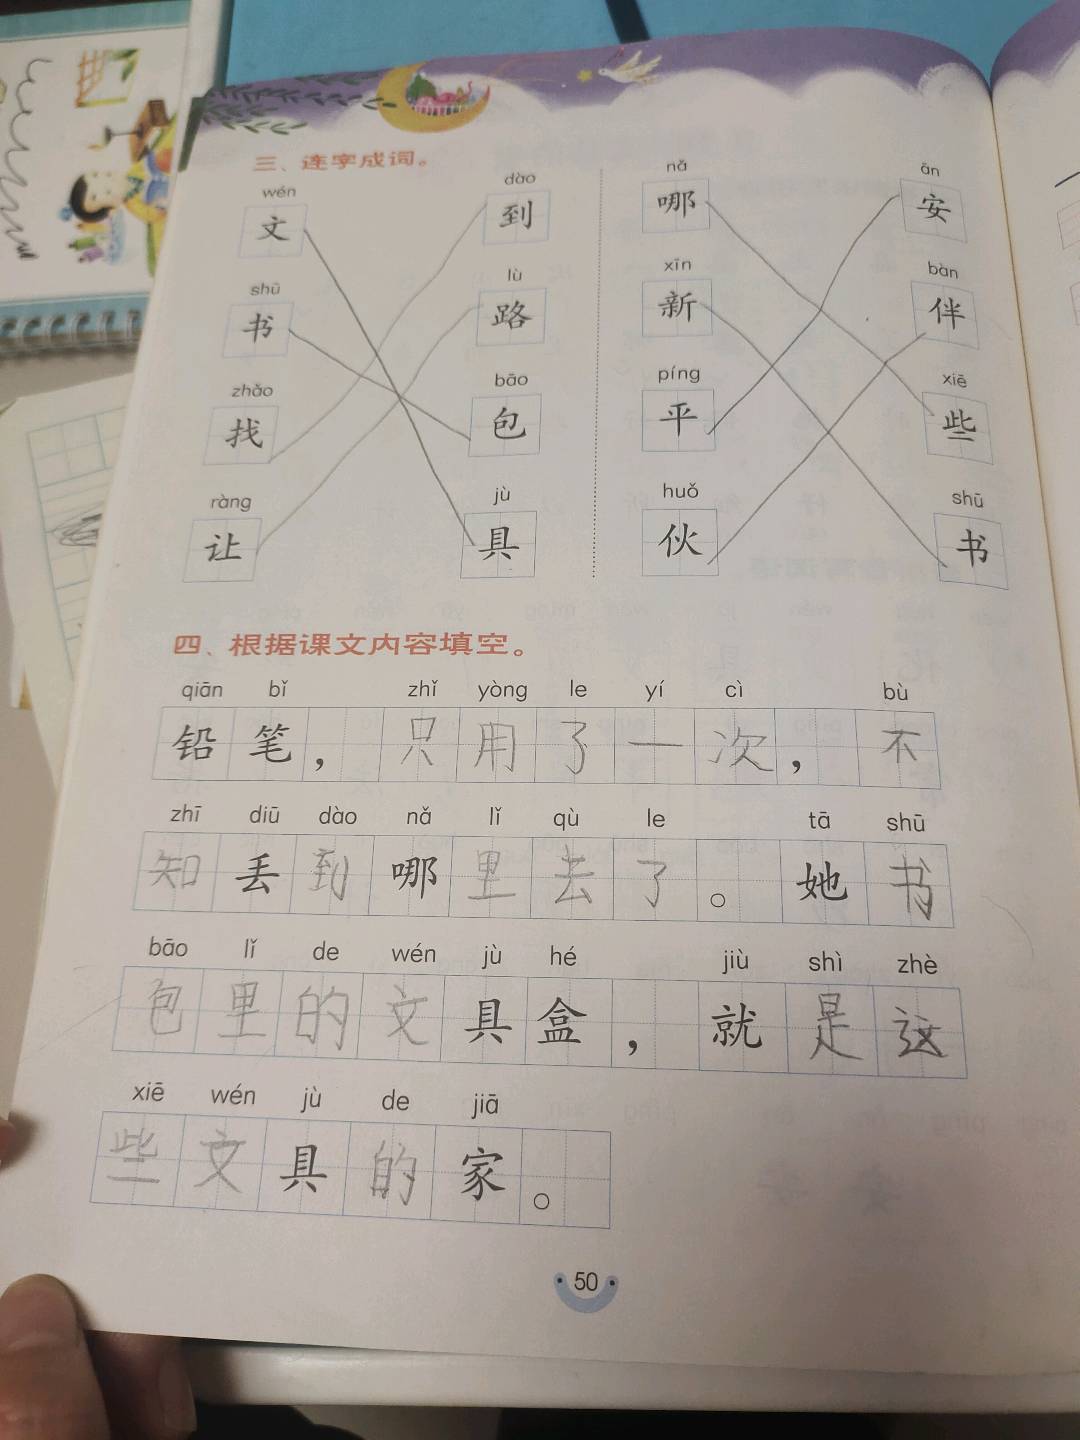 三、连字成词。
wén dào nǎ ān
文 到 哪 安
shū lù xīn bàn
书 路 新 伴
zhǎo bāo píng xiē
找 包 平 些
ràng jù huǒ shū
让 具 伙 书
四、根据课文内容填空。
qiān bǐ zhǐ yòng le yí cì bù
铅笔，只用了一次，不
zhī diū dào nǎ lǐ qù le tā shū
知丢到哪里去了。她书
bāo lǐ de wén jù hé jiù shì zhè
包里的文具盒，就是这
xiē wén jù de jiā
些文具的家。
50